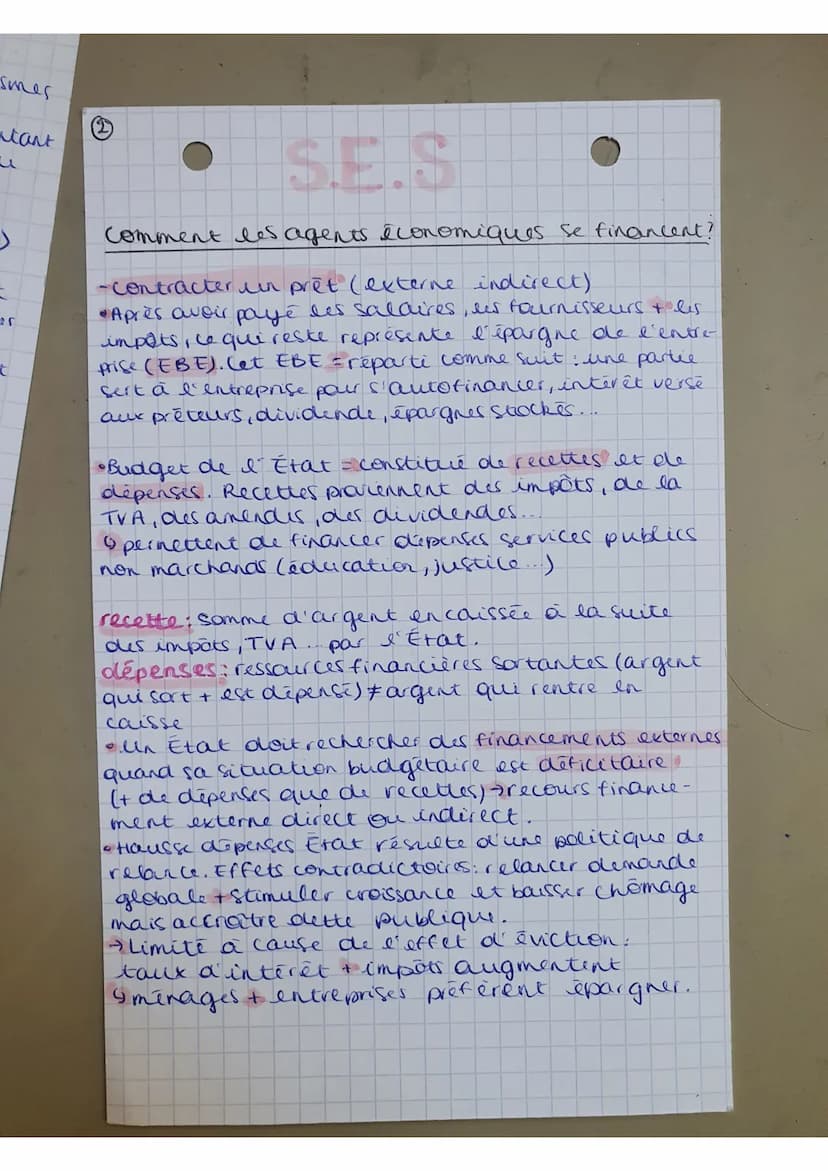 smes
utant
②
S.E.S
Comment les agents économiques se financent?
-contracter un prêt (externe indirect)
•Après avoir payé les salaires, les fournisseurs + les
impôts, ce qui reste représente l'épargne de l'entre-
prise (EBE). Cet EBE = réparti comme suit : une partie
sert à l'entreprise pour s'autofinancer, intérêt versé
aux prêteurs, dividende, épargnes stockés...
•Budget de l'État = constitué de recettes et de
dépenses. Recettes proviennent des impôts, de la
TVA, des amendes, des dividendes...
↳ permettent de financer dépenses services publics
non marchands (éducation, justice...)
recette : somme d'argent encaissée à la suite
des impôts, TVA... par l'État.
dépenses : ressources financières sortantes (argent
qui sort + est dépensé) ≠ argent qui rentre en
caisse
•Un État doit rechercher des financements externes
quand sa situation budgétaire est déficitaire
(+ de dépenses que de recettes) → recours finance-
ment externe direct ou indirect.
•Hausse dépenses État résulte d'une politique de
relance. Effets contradictoires : relancer demande
globale + stimuler croissance et baisser chômage
mais accroître dette publique.
→ Limité à cause de l'effet d'éviction :
taux d'intérêt + impôts augmentent
↳ ménages + entreprises préfèrent épargner.